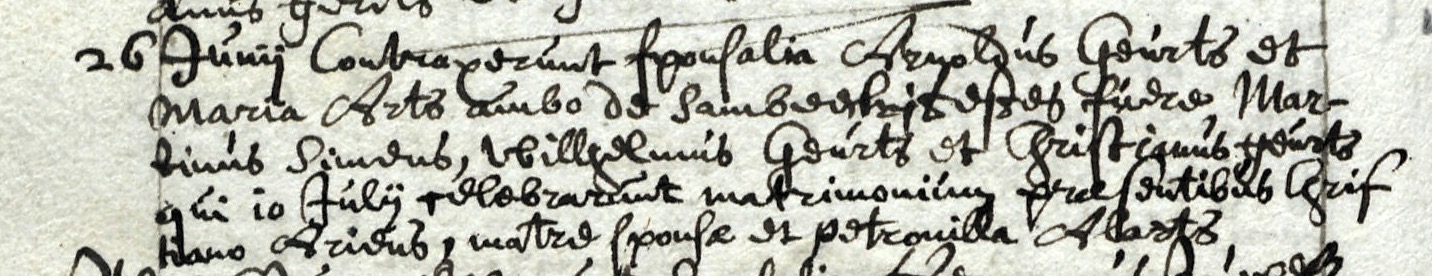 26 Junij Contraxerunt sponsalia Arnoldus Geurts et
Maria Arts ambo de Sambeek testes fuere Mar-
tinus Simens, Willhelmus Geurts et Christianus geurts
qui 10 July celebrarunt matrimonium praesentibus Chris
tiano Ariens, matre sponsae et petronilla Abarts